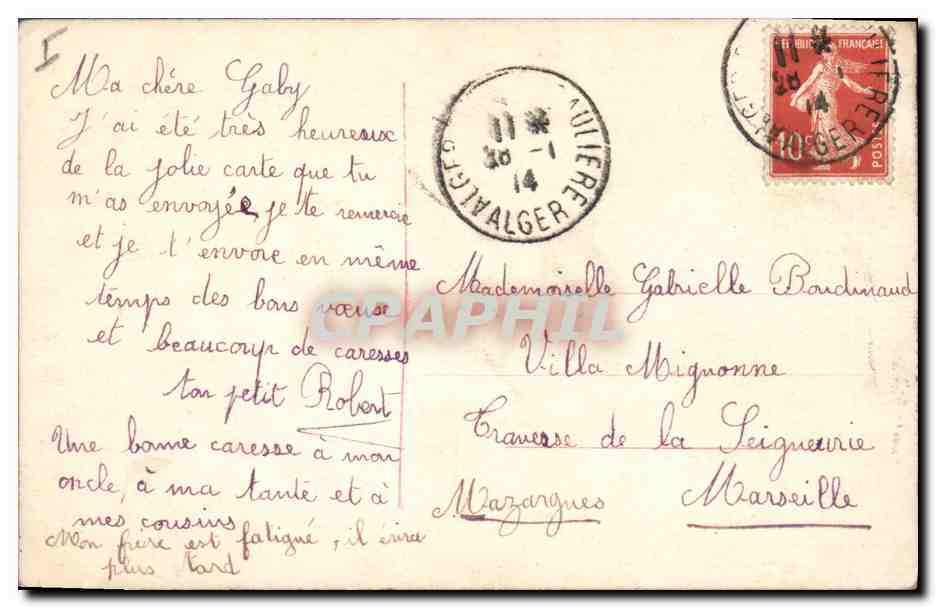 I
Ma chère Gaby
J'ai été très heureux
de la jolie carte que tu
m'as envoyée, je te remercie
et je t'envoie en même
temps des bons vœux
et beaucoup de caresses
ton petit Robert
Une bonne caresse à mon
oncle, à ma tante et à
mes cousins
Mon frère est fatigué, il écrira
plus tard
11 *
28 -1
14
ALGER
RÉPUBLIQUE FRANÇAISE
10c
POSTES
11 *
28 -1
14
ALGER
Mademoiselle Gabrielle Boudinaud
Villa Mignonne
Traverse de la Seigneurie
Mazargues Marseille
CPAPHIL